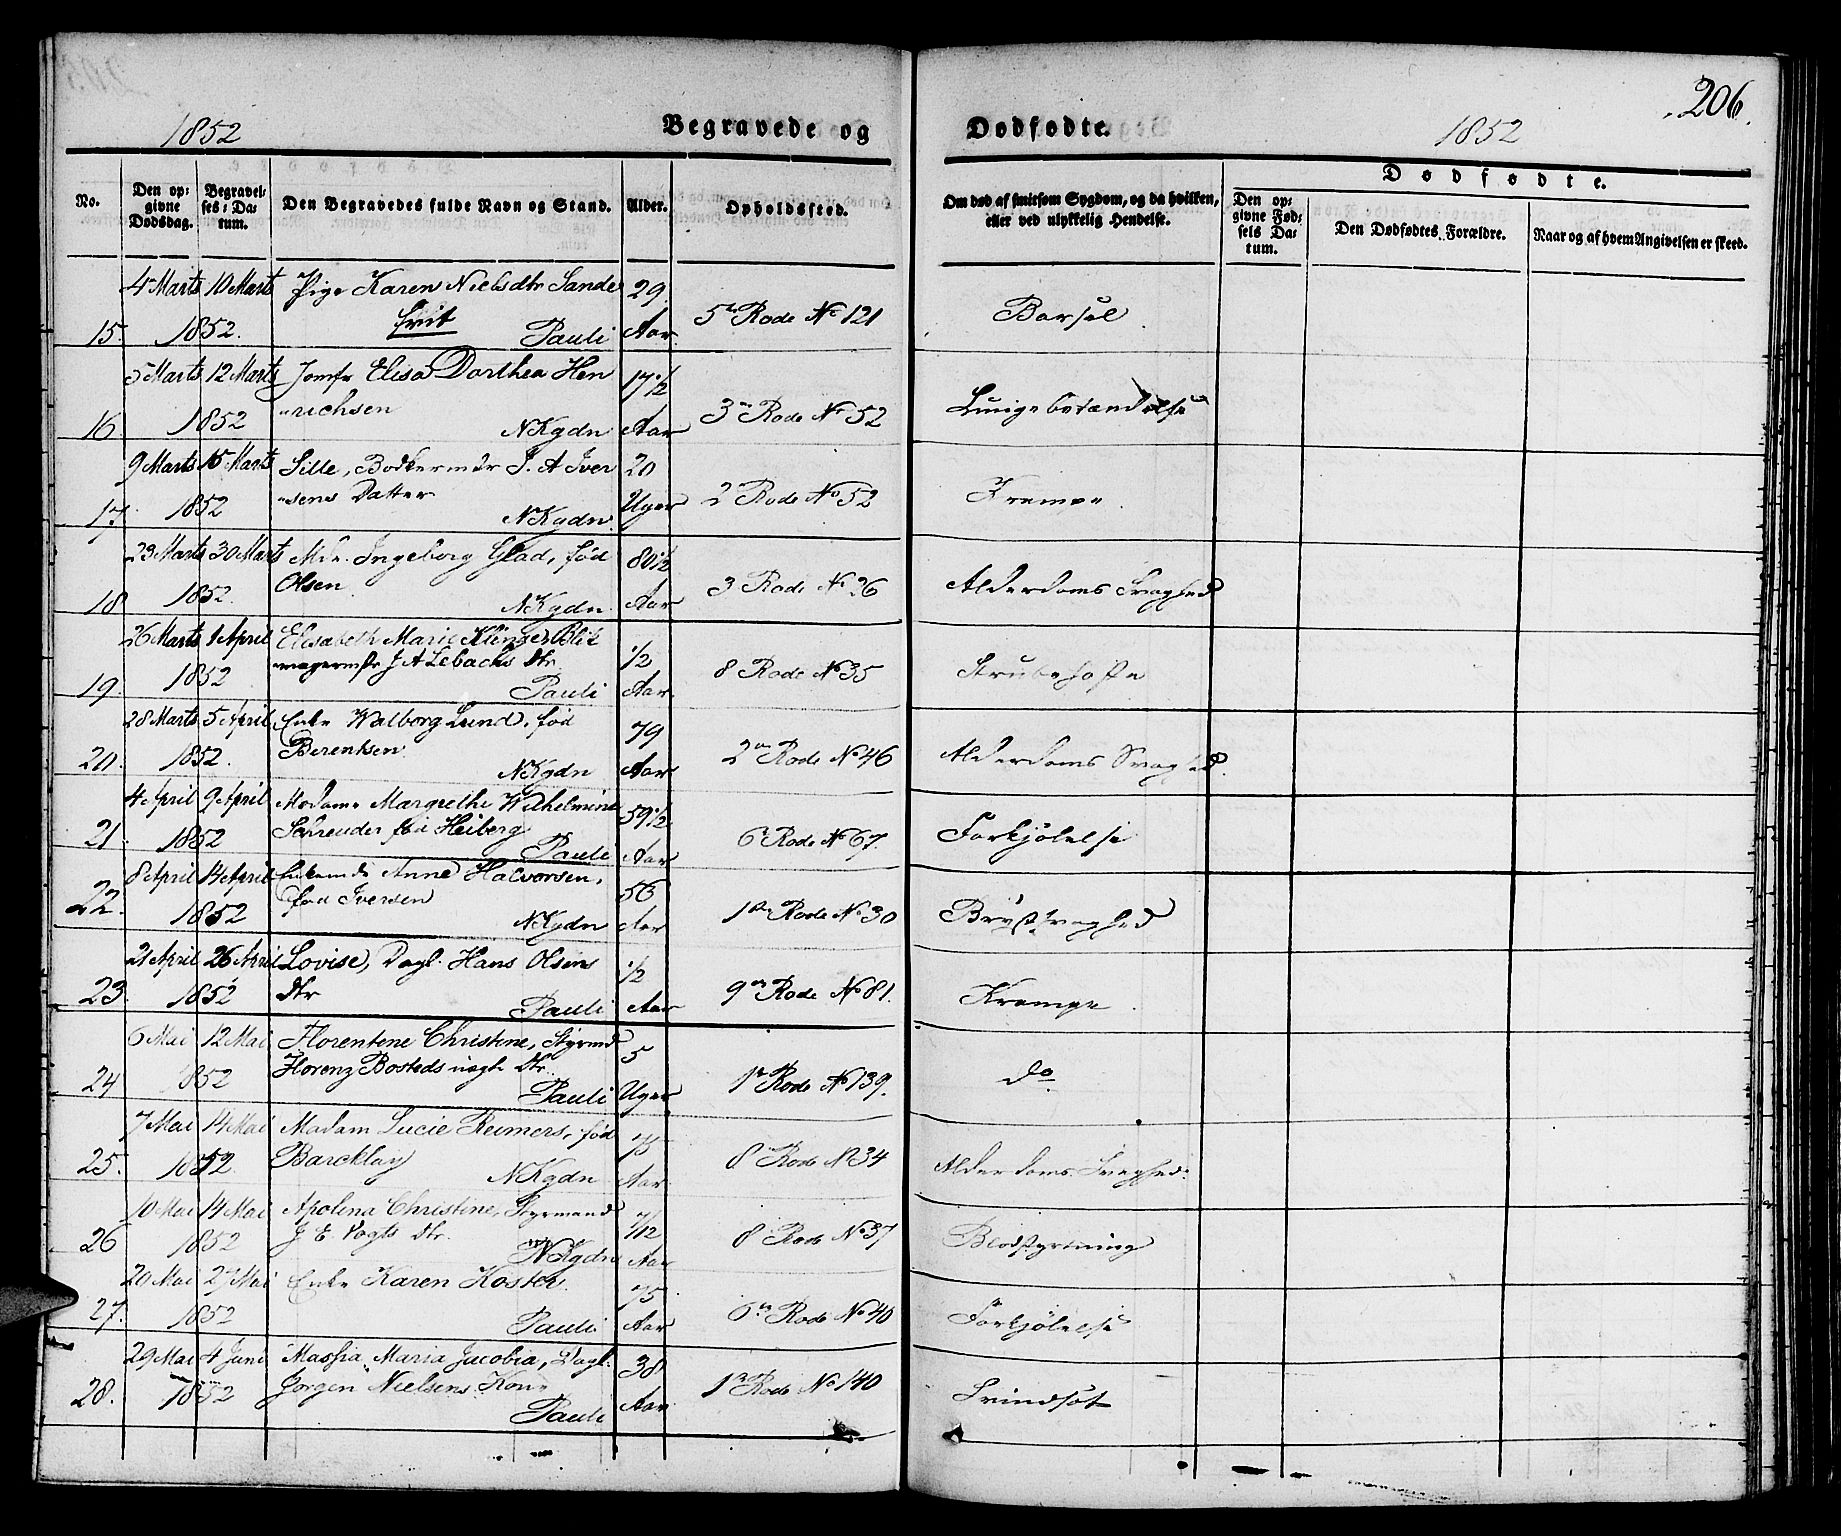 206.
1852 Begravede og Dødfødte. 1852
No.
Den opgivne Dødsdag.
Begravelses-Datum.
Den Begravedes fulde Navn og Stand.
Alder.
Opholdssted.
Om død af smitsom Sygdom, og da hvilken, eller ved ulykkelig Hendelse.
Dødfødte.
Den opgivne Fødsels Datum.
Den Dødfødtes Forældre.
Naar og af hvem Angivelsen er skeed.
4 Marts 10 Marts Pige Karen Nielsdtr Sande 29
15. 1852. frit Pauli Aar 5te Rode No 121 Barsel
5 Marts 12 Marts Jomfr Elisa Dorthea Hen 17 1/2
16. 1852 richsen NKgdn Aar 3 Rode No 52 Lungebetændelse
9 Marts 15 Marts Sille, Bødkermstr J. A Iver 20
17. 1852 sens Datter NKgdn. Uger 2 Rode No 52 Krampe
23 Marts 30 Marts Mdm. Ingeborg Glad, fød 80 1/2
18 1852. Olsen NKgdn. Aar 3 Rode No 36 Alderdoms Svaghed
26 Marts 1 April Elisabeth Marie Klinge, Blik 1/2
19 1852 magermstr J A Lebachs Dtr. Pauli Aar. 8 Rode No 35 Strubehoste
28 Marts 5 April Enke Walborg Lund, fød 79
20. 1852. Berentsen NKgdn Aar 2 Rode No 46 Alderdoms Svaghed.
4 April 9 April Madame Margrethe Wilhelmine 59 1/2
21. 1852 Schreuder fød Heiberg Pauli Aar 6 Rode No 67. Forkjølelse
8 April 14 April Enkemd Anne Halvorsen, 56
22. 1852 fød Iversen NKgdn Aar 1ste Rode No 30 Brystsvaghed
21 April 26 April Lovise, Dagl. Hans Olsens 1/2
23. 1852 Dtr Pauli Aar 9 Rode No 81. Krampe
6 Mai 12 Mai Florentine Christine, Styrmd 5
24 1852 Florenz Bosteds uægte Dtr. Pauli Uger 1 Rode No 139. do
7 Mai 14 Mai Madam Lucie Reimers, fød 75
25. 1852. Barcklay NKgdn Aar. 8 Rode No 34 Alderdoms Svaghed.
10 Mai 14 Mai Apolena Christine, Styrmand 7/12
26 1852 J E Vogts Dtr. NKgdn Aar 8 Rode No 37 Blodstyrtning
20 Mai 27 Mai Enke Karen Koster. 75
27. 1852 Pauli Aar 6 Rode No 40 Forkjølelse
29 Mai 4 Juni Massia Maria Jacobia, Dagl. 38
28. 1852 Jørgen Nielsens Kone Pauli Aar 1 Rode No 140 Svindsot